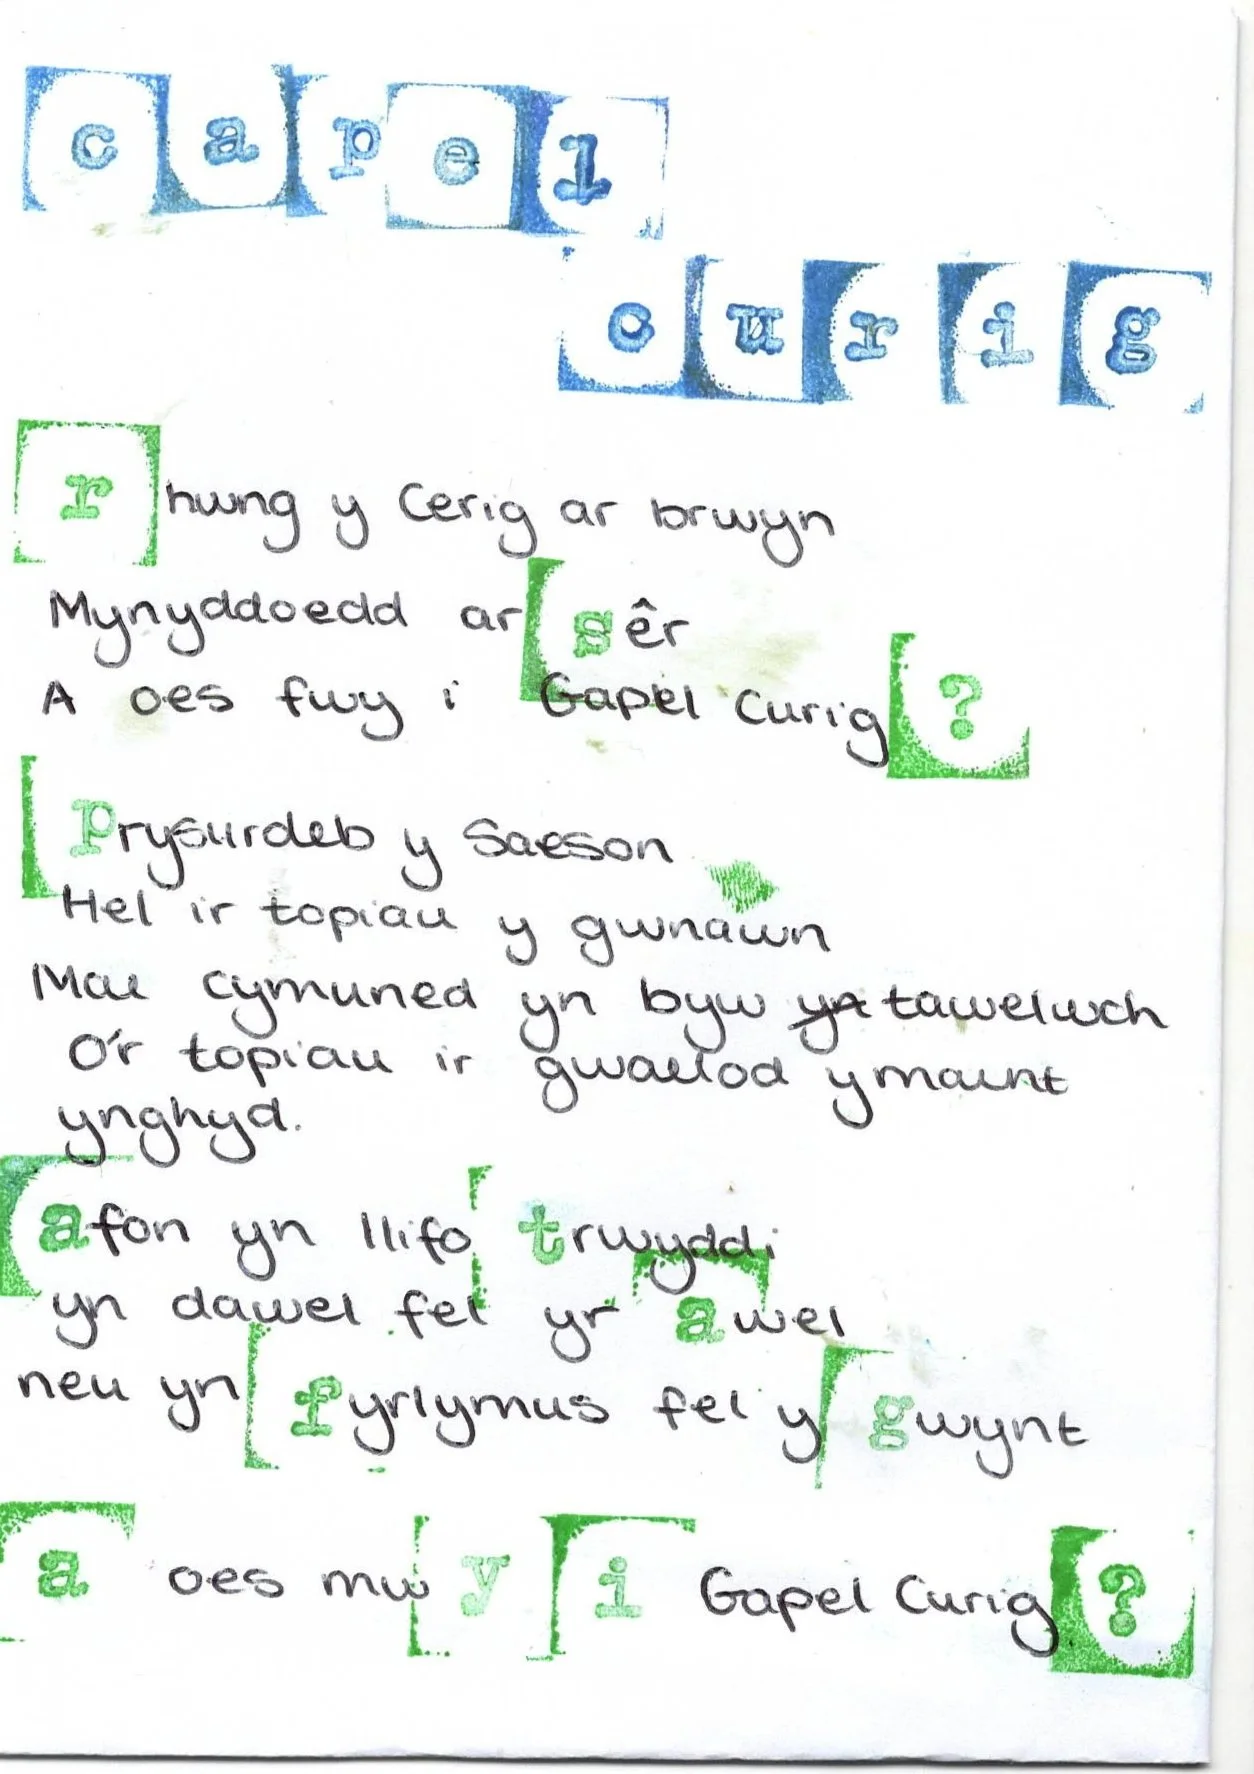 capel
curig
rhwng y Cerig ar brwyn
Mynyddoedd ar sêr
A oes fwy i Gapel Curig?
Prysurdeb y Saeson
Hel ir topiau y gwnawn
Mae cymuned yn byw yn tawelwch
O'r topiau ir gwaelod ymaint
ynghyd.
afon yn llifo trwyddi
yn dawel fel yr awel
neu yn fyrlymus fel y gwynt
a oes mwy i Gapel Curig?